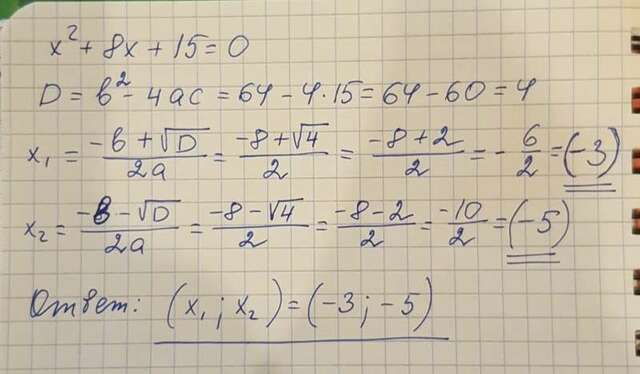 x² + 8x + 15 = 0
D = b² - 4ac = 64 - 4·15 = 64 - 60 = 4
x₁ = (-b + √D)/(2a) = (-8 + √4)/2 = (-8 + 2)/2 = - 6/2 = (-3)
x₂ = (-b - √D)/(2a) = (-8 - √4)/2 = (-8 - 2)/2 = (-10)/2 = (-5)
Ответ: (x₁ ; x₂) = (-3 ; -5)